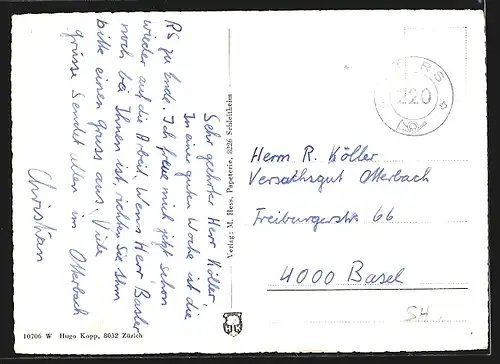 Sehr geehrter Herr Köller,
In einer guten Woche ist die
RS zu Ende. Ich freue mich jetzt schon
wieder auf die Arbeit. Wenn Herr Basler
noch bei Ihnen ist, richten Sie ihm
bitte einen Gruss aus! Viele
Grüsse Sendet allen im Otterbach
Christian
10706 W Hugo Kopp, 8032 Zürich
Verlag: M. Hess, Papeterie, 8226 Schleitheim
RS
220
Herrn R. Köller
Versathsgut Otterbach
Freiburgerstr 66
4000 Basel
SH.